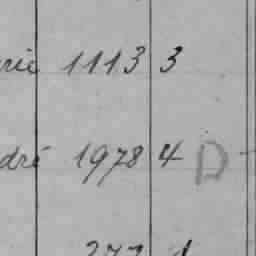 rie 1113 3
dré 1978 4 D